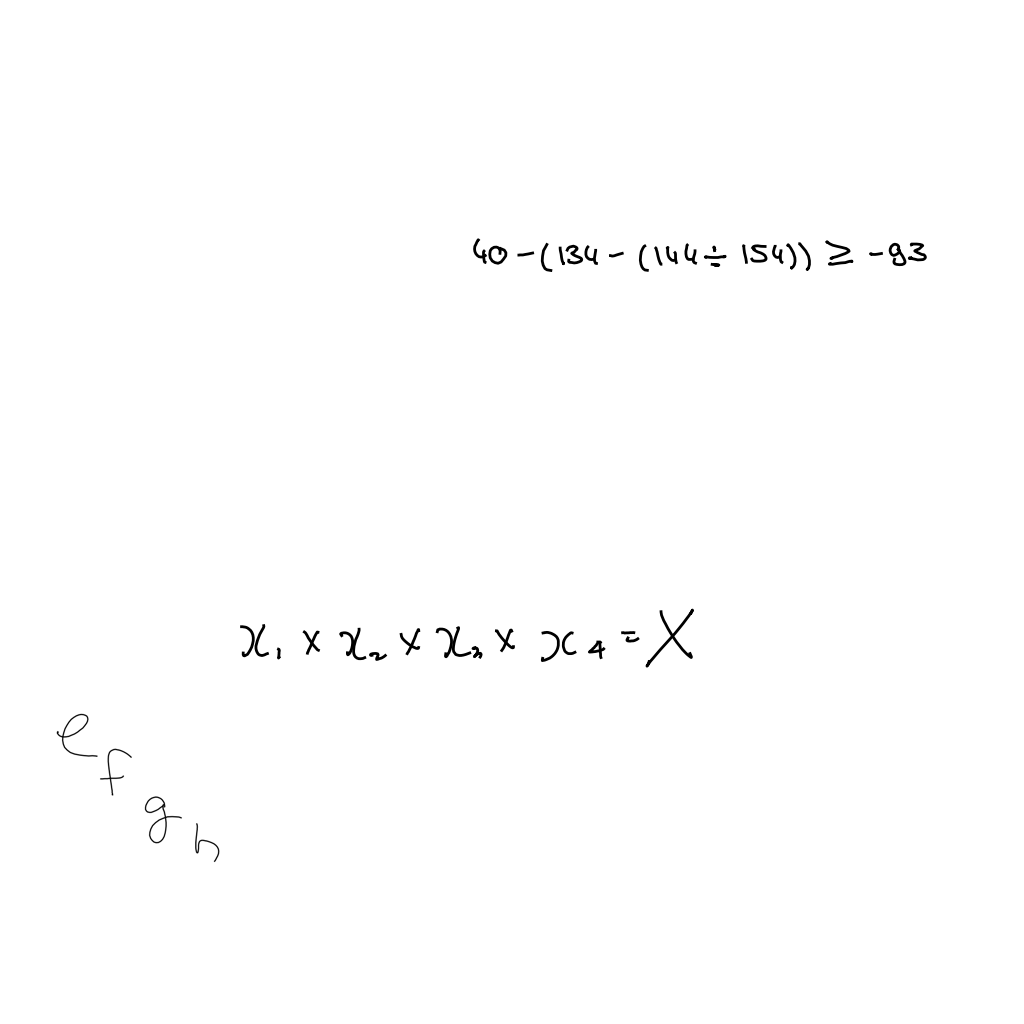 40 - (134 - (144 ÷ 154)) ≥ -93
x₁ × x₂ × x₃ × x₄ = X
e f g h